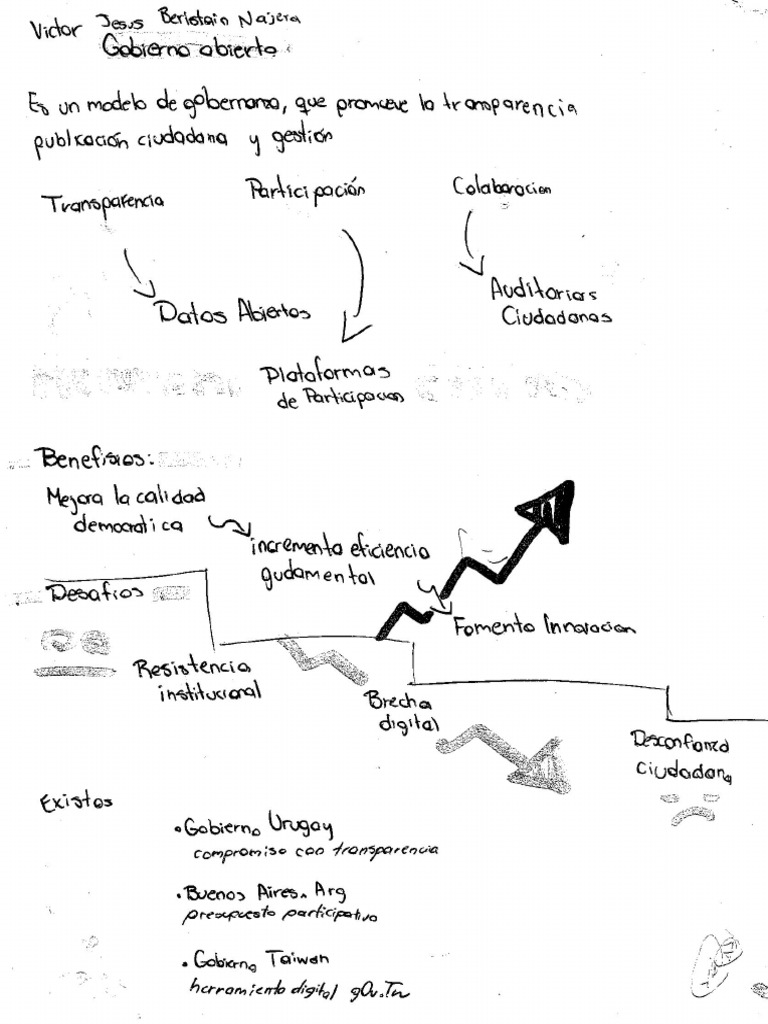 Victor Jesus Beristain Najera
Gobierno abierto
Es un modelo de gobernanza, que promueve la transparencia
publicación ciudadana y gestión
Transparencia
Participación
Colaboracion
Datos Abiertos
Plataformas
de Participacion
Auditorias
Ciudadanas
Benefisios:
Mejora la calidad
democratica
incremento eficiencia
gudamental
Fomento Innovacion
Desafios
Resistencia
institucional
Brecha
digital
Desconfianza
ciudadana
Existos
• Gobierno Urugay
compromiso con transparencia
• Buenos Aires. Arg
presupuesto participativo
• Gobierno Taiwan
herramienta digital gov.Tw